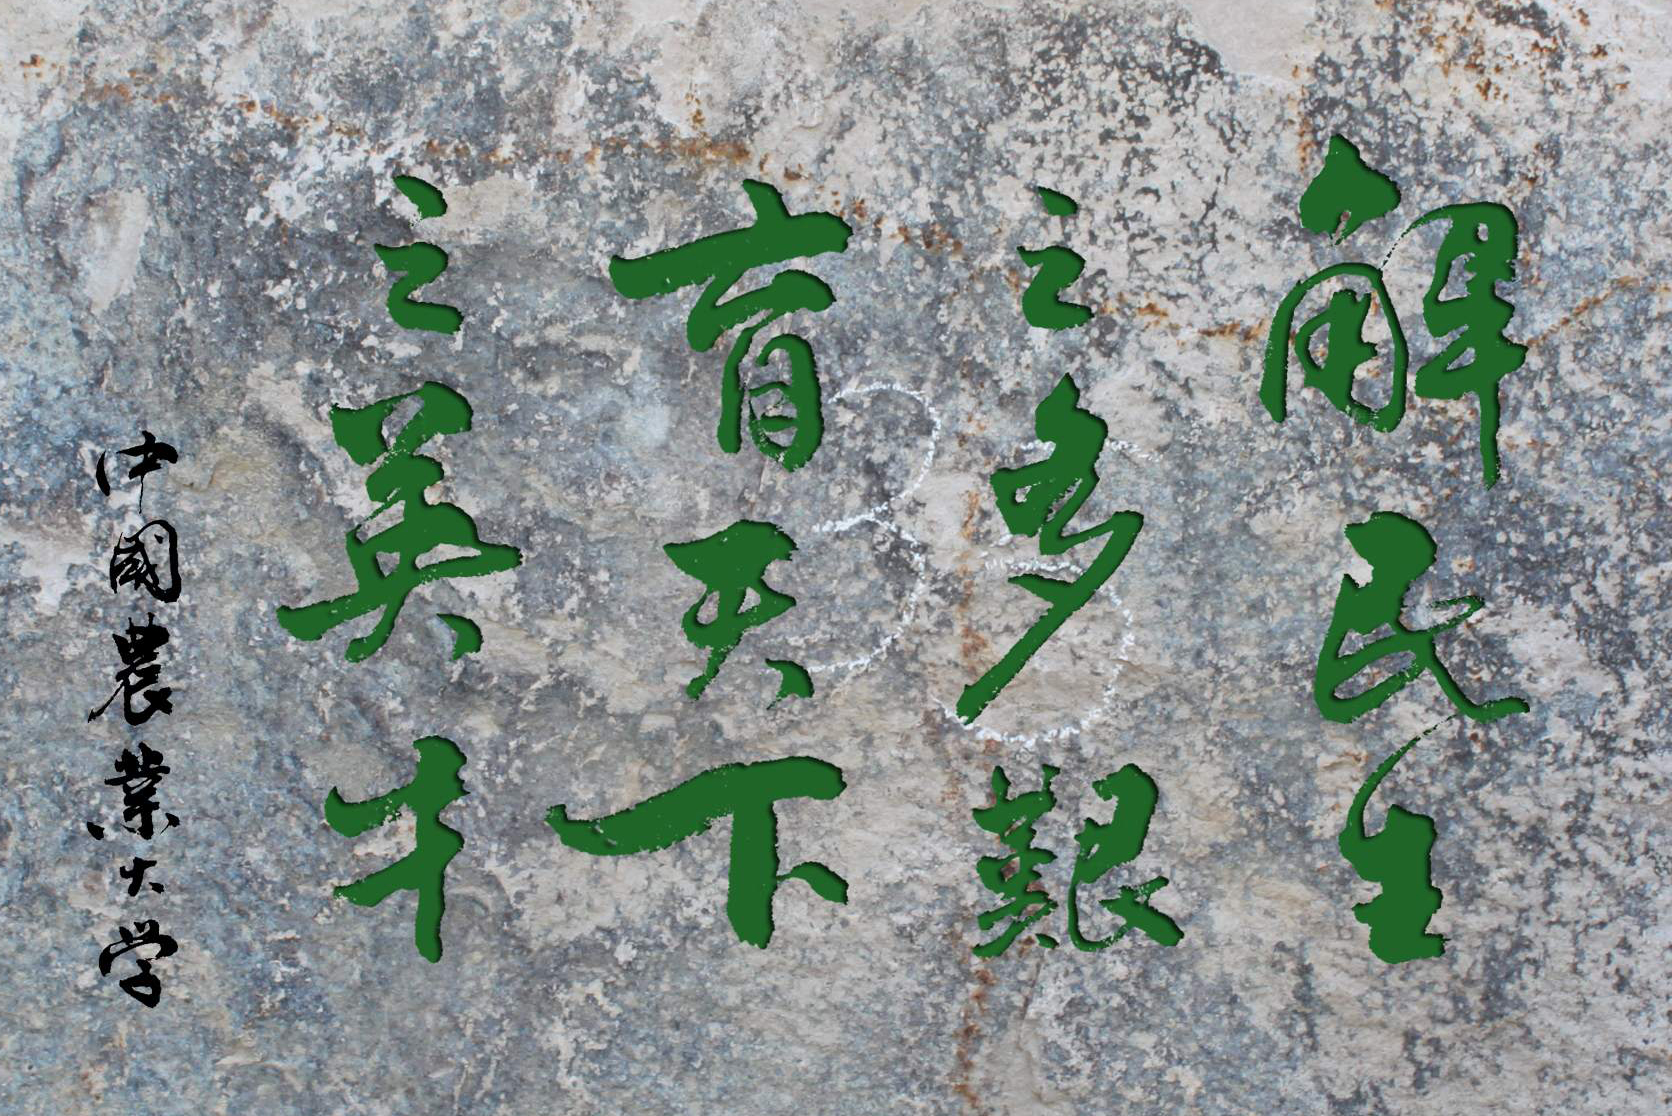 解民生
之多艱
育天下
之英才
中國農業大学